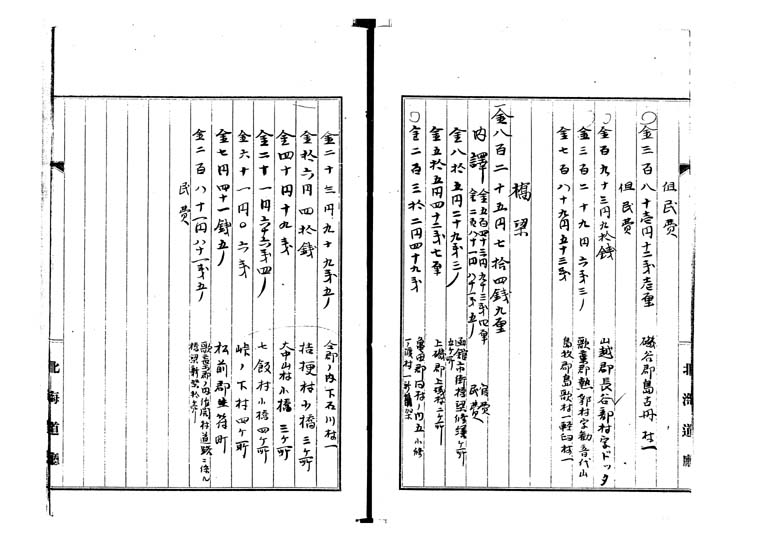 但民費
金三百八十壱円十二銭七厘
磯谷郡島古丹村一
但民費
金百九十三円九拾銭
山越郡長谷部村字ドッタ
金三百二十九円六銭三リ
歌棄郡熱郛村字
金七百八十九円五十三銭
島牧郡島歌村一軽臼村一
橋梁
一金八百二十五円七拾四銭九厘
内訳
金五百四十三円九十三銭四厘
官費
金二百八十一円八十一銭五リ
民費
金八拾五円二十九銭三リ
函館市街橋梁修繕ケ所
金五拾五円四十二銭七厘
上磯郡上磯村二ケ所
金二百三拾二円四十九銭
亀田郡
金二十三円九十九銭五リ
仝郡ノ内下石川村一
金拾六円四拾銭
桔梗村少橋三ケ所
金四十円十九銭
大中山村小橋三ケ所
金二十一円六十六銭四リ
七飯村小橋四ケ所
金六十一円〇六銭
峠ノ下村四ケ所
金七円四十一銭五リ
松前郡生符町
金二百八十一円八十一銭五リ
歌棄郡ノ内
道路ニ係ル
民費
北海道庁
北海道庁